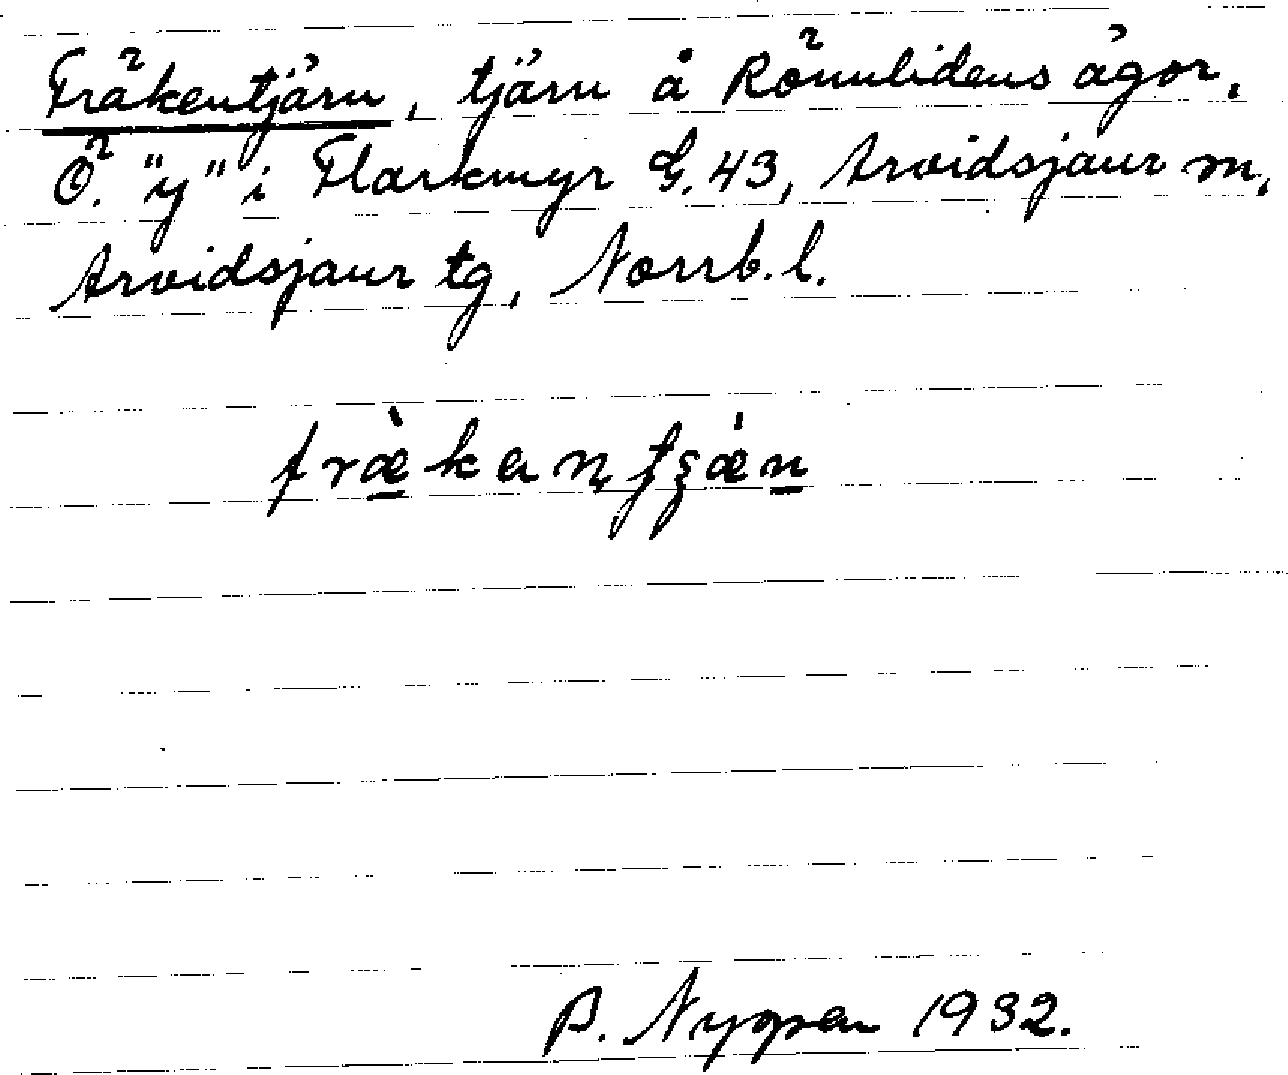 Fräkentjärn, tjärn å Rönnlidens ägor,
Ö. "y" i Flarkmyr G.43, Arvidsjaur sn,
Arvidsjaur tg, Norrb. l.
fræ̀kantjæ̀n
B. Nygren 1932.